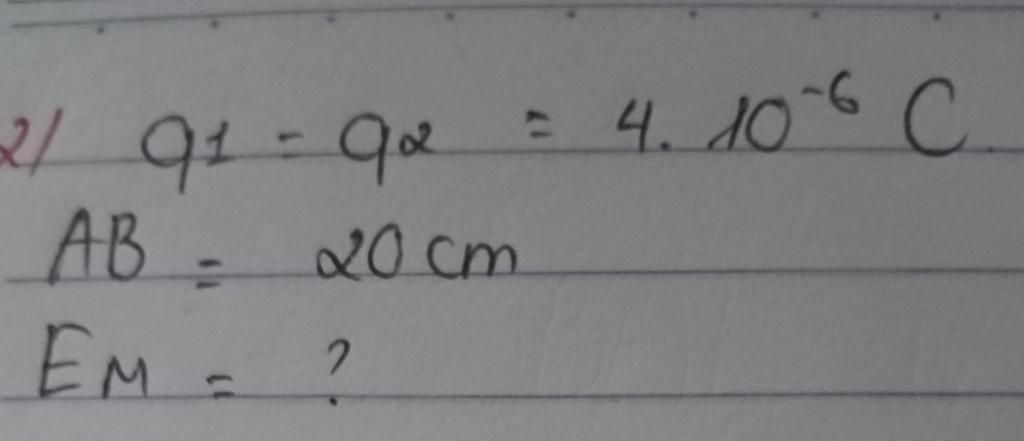 2/ q1 = q2 = 4. 10⁻⁶ C
AB = 20 cm
EM = ?